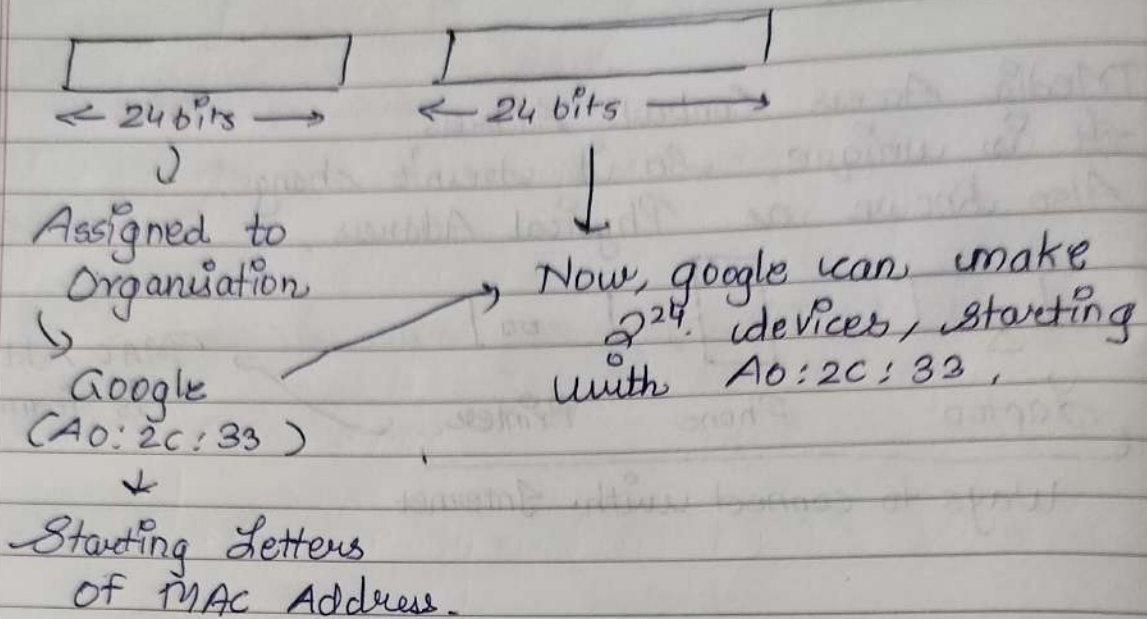 ← 24 bits →
← 24 bits →
Assigned to
Organisation
Google
(A0:2C:33)
Starting Letters
Of MAC Address.
Now, google can make
2^24 devices, starting
with A0:2C:33,